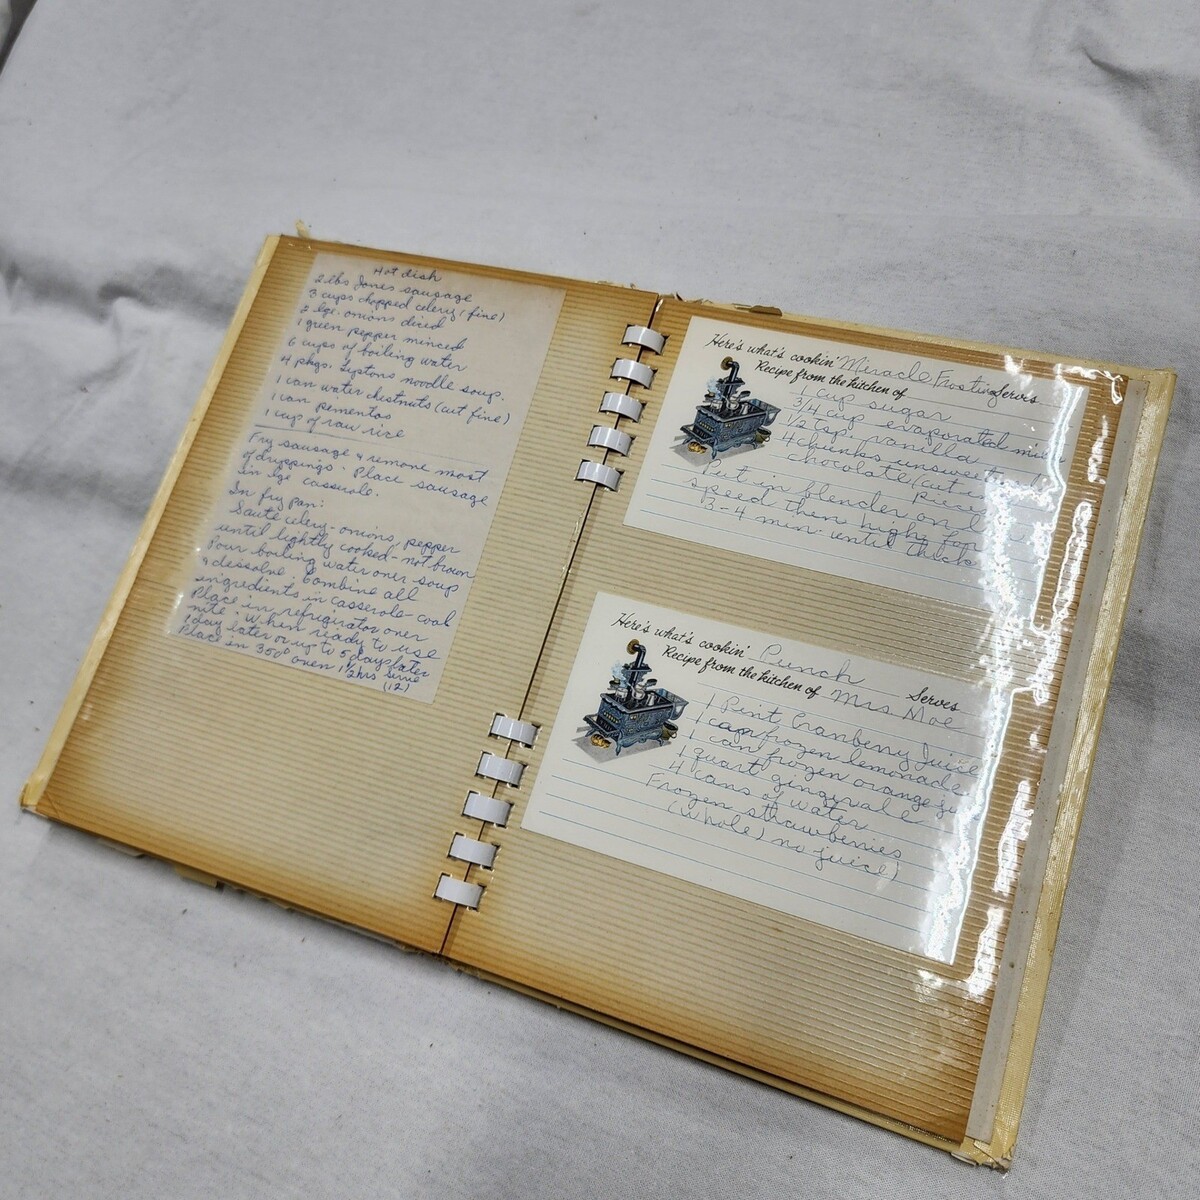 Hot dish
2 lbs Jones sausage
3 cups chopped celery (fine)
2 lge. onions diced
1 green pepper minced
6 cups of boiling water
4 pkgs. Liptons noodle soup.
1 can water chestnuts (cut fine)
1 can pementos
1 cup of raw rice
Fry sausage & remove most
of drippings. Place sausage
in lge casserole.
In fry pan:
Saute celery - onions, pepper
until lightly cooked - not brown
Pour boiling water over soup
& dessolve. Combine all
ingredients in casserole - cool
Place in refrigirator over
nite. When ready to use
1 day later or up to 5 days later
Place in 350° oven 1 1/2 hrs serve
(12)
Here's what's cookin' Miracle Frosting Serves
Recipe from the kitchen of
1 cup sugar
3/4 cup evaporated milk
1/2 tsp. vanilla
4 chunks
chocolate (cut in
pieces
Put in blender on
speed then high for
3-4 min. until thick
Here's what's cookin' Punch Serves
Recipe from the kitchen of Mrs Moe
1 Pint Cranberry Juice
1 can frozen lemonade
1 can frozen orange
1 quart gingerale
4 cans of water
Frozen strawberries
(whole) no juice)